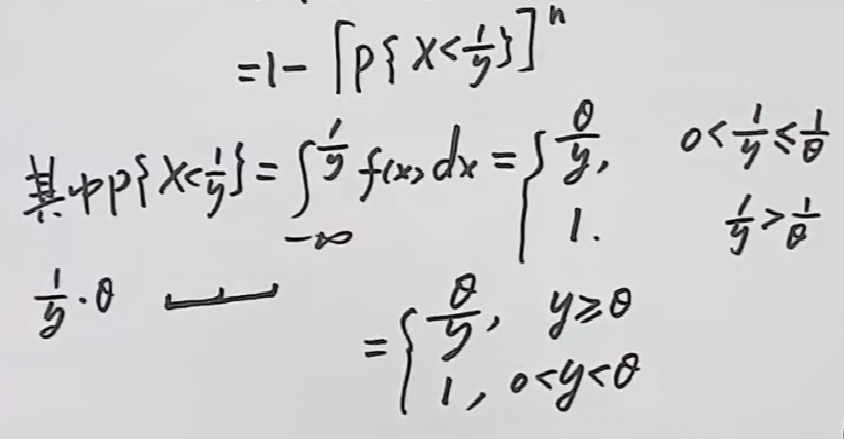 =1-[P{X<1/y}]^n
其中P{X<1/y}=∫_{-∞}^{1/y} f(x)dx={θ/y, 0<1/y≤1/θ
1. 1/y>1/θ
1/y·θ
={θ/y, y≥θ
1, 0<y<θ